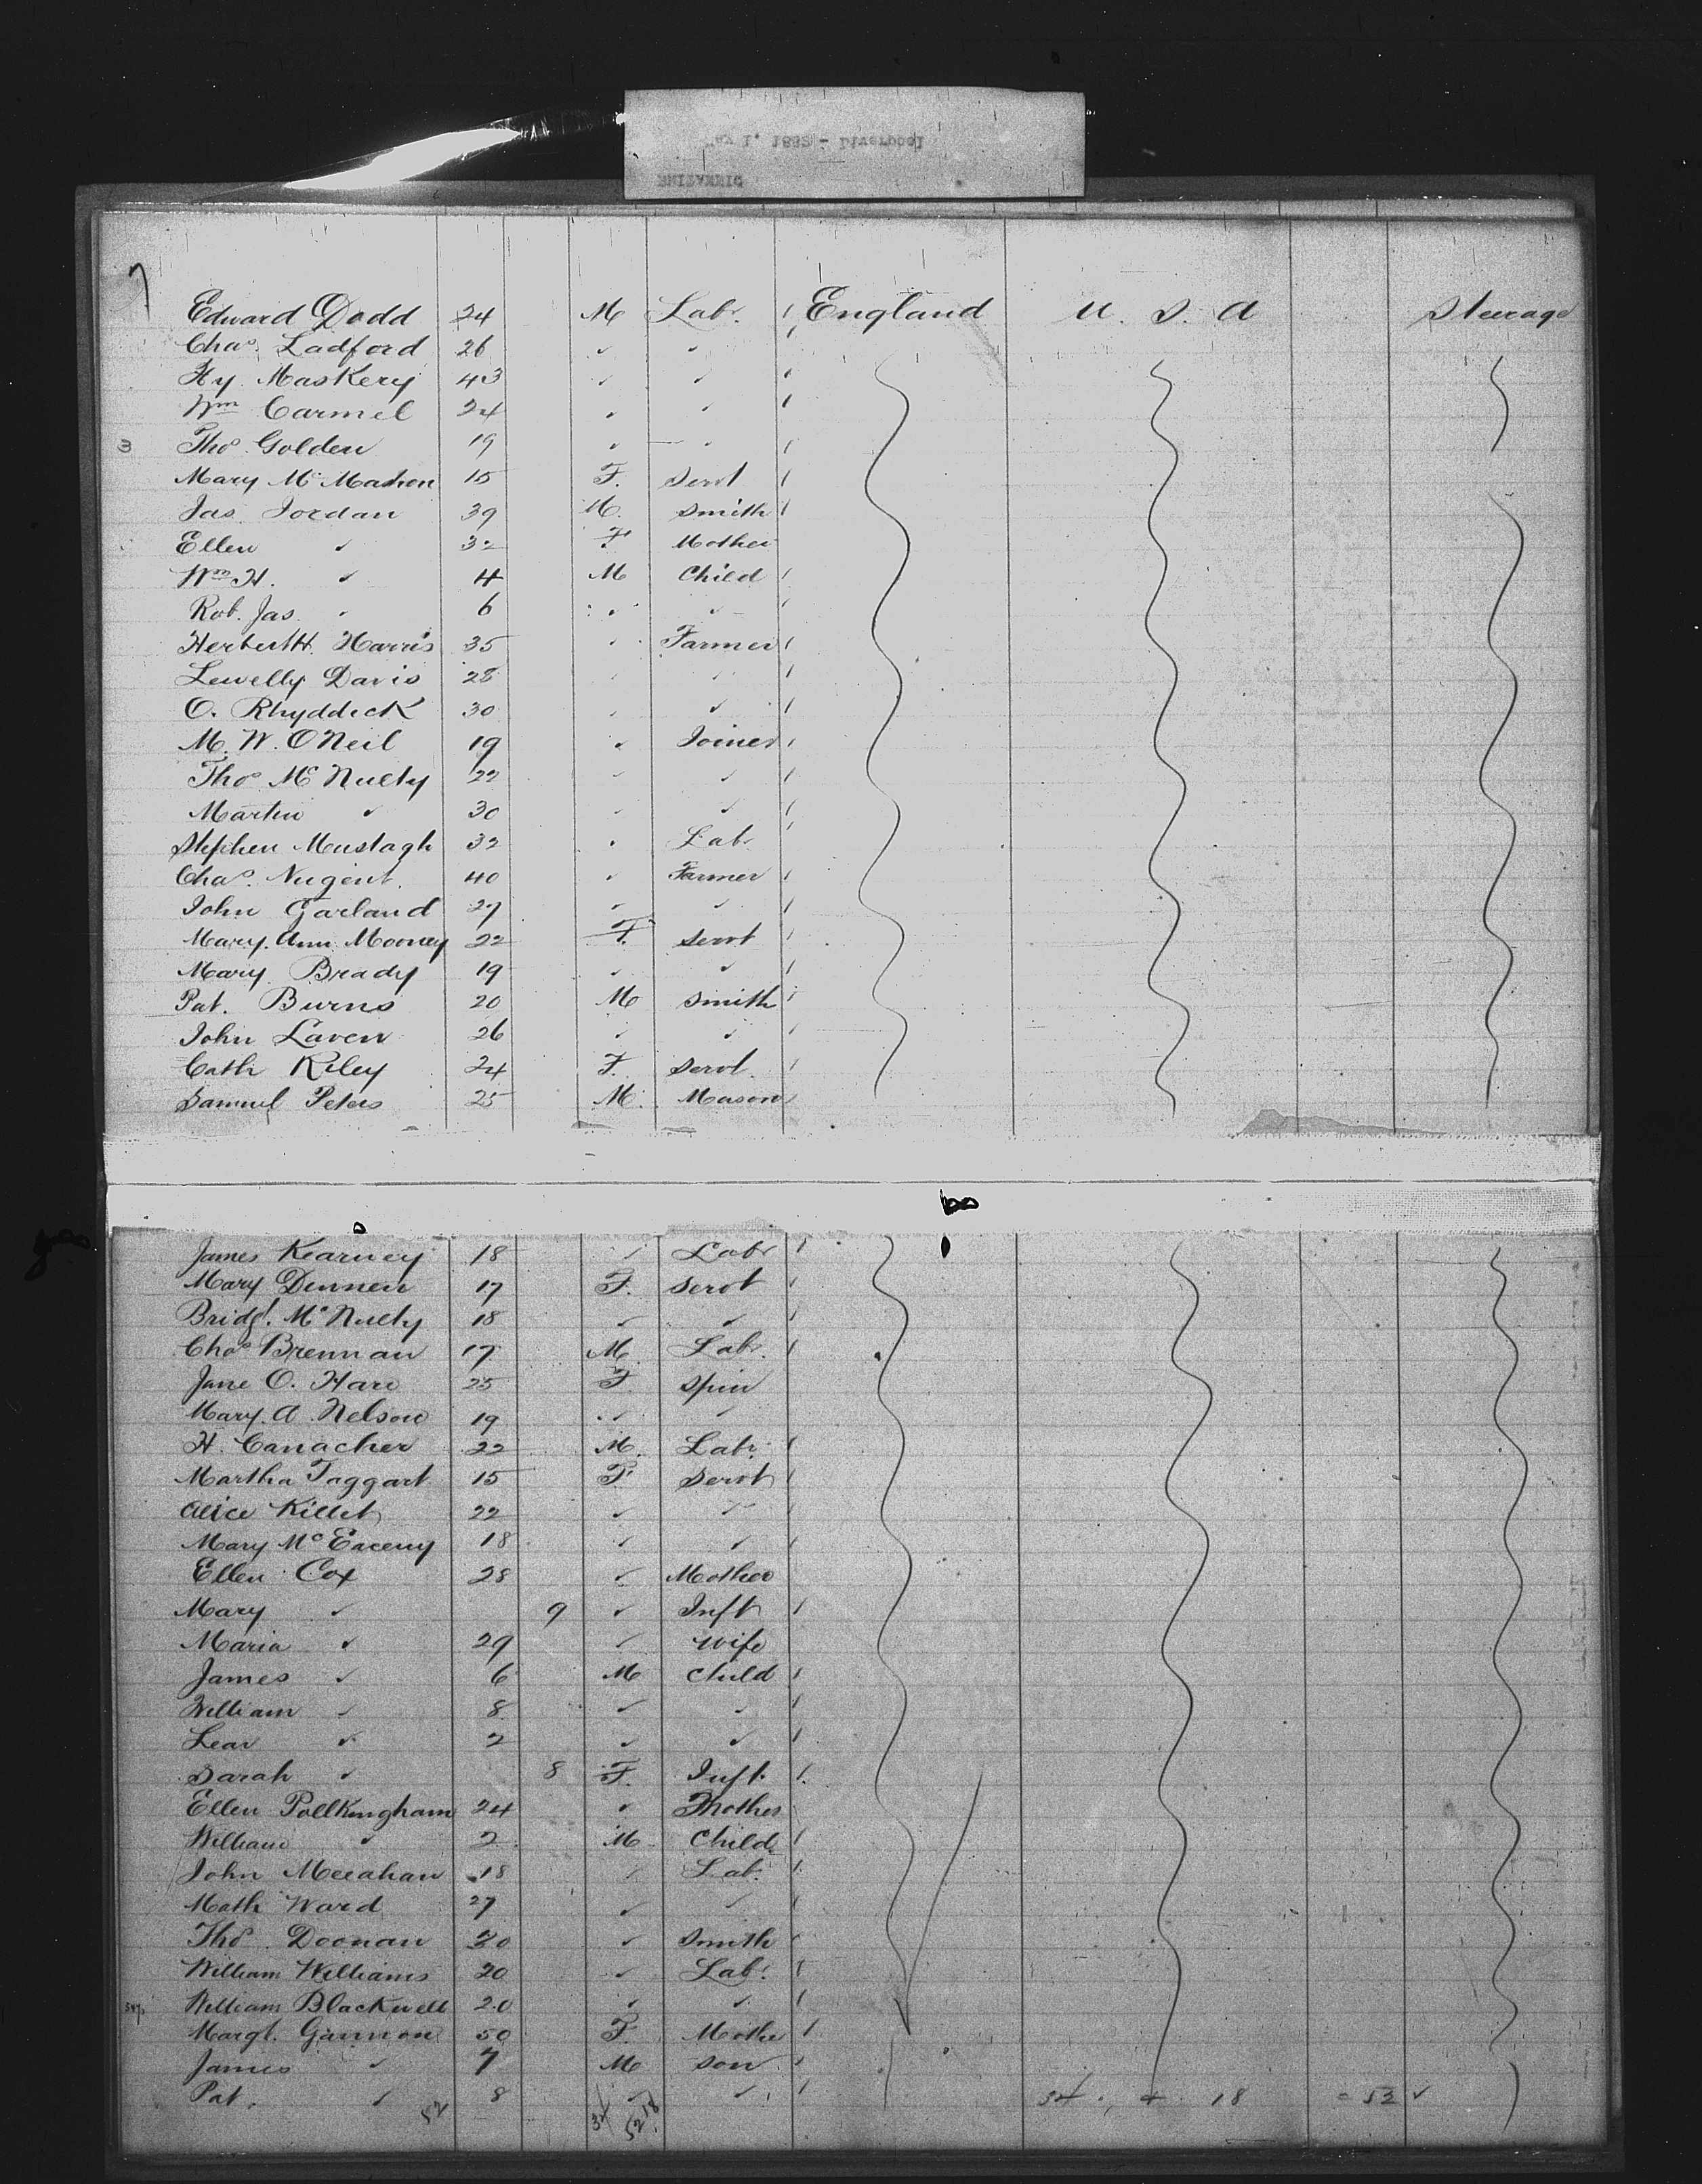 BRITANNIC
May 1, 1882 - Liverpool
7
Edward Dodd 24 M Labr. England U. S. A Steerage
Chas. Ladford 26 ✓ ✓
Hy. Maskery 43 ✓ ✓
Wm Carmel 24 ✓ ✓
3 Thos. Golden 19 ✓ ✓
Mary McMahon 15 F. Servt
Jas. Jordan 39 M. Smith
Ellen ✓ 32 F Mother
Wm H. ✓ 4 M Child
Rob. Jas. ✓ 6 ✓ ✓
Herbert H. Harris 35 ✓ Farmer
Lewelly Davis 28 ✓ ✓
O. Rhyddick 30 ✓ ✓
M. W. O'Neil 19 ✓ Joiner
Thos McNulty 22 ✓ ✓
Martin ✓ 30 ✓ ✓
Stephen Mustagh 32 ✓ Labr
Chas. Nugent. 40 ✓ Farmer
John Garland 27 ✓ ✓
Mary Ann Mooney 22 F. Servt
Mary Brady 19 ✓ ✓
Pat. Burns 20 M Smith
John Laven 26 ✓ ✓
Cath Riley 24 F. Servt.
Samuel Peters 25 M. Mason
James Kearney 18 ✓ Labr
Mary Dennen 17 F. Servt
Bridgt. McNulty 18 ✓ ✓
Chas Brennan 17 M Labr.
Jane O. Hare 25 F Spin
Mary. A. Nelson 19 ✓ ✓
H. Canacher 22 M. Labr.
Martha Taggart 15 F. Servt
Alice Killet 22 ✓ ✓
Mary Mc 18 ✓ ✓
Ellen Cox 28 ✓ Mother
Mary ✓ 9 ✓ Inft
Maria ✓ 29 ✓ Wife
James ✓ 6 M Child
William ✓ 8 ✓ ✓
Lear ✓ 2 ✓ ✓
Sarah ✓ 8 F. Inft.
Ellen Pollkingham 24 ✓ Mother
William ✓ 2 M Child
John Meeahan 18 ✓ Lab.
Math Ward 27 ✓ ✓
Thos. Doonan 20 ✓ Smith
William Williams 20 ✓ Lab.
William Blackwell 20 ✓ ✓
Margt. Gannon 50 F. Mother
James ✓ 7 M Son
Pat. ✓ 8 ✓ ✓ 34 18 = 52 ✓
52 34 18
52